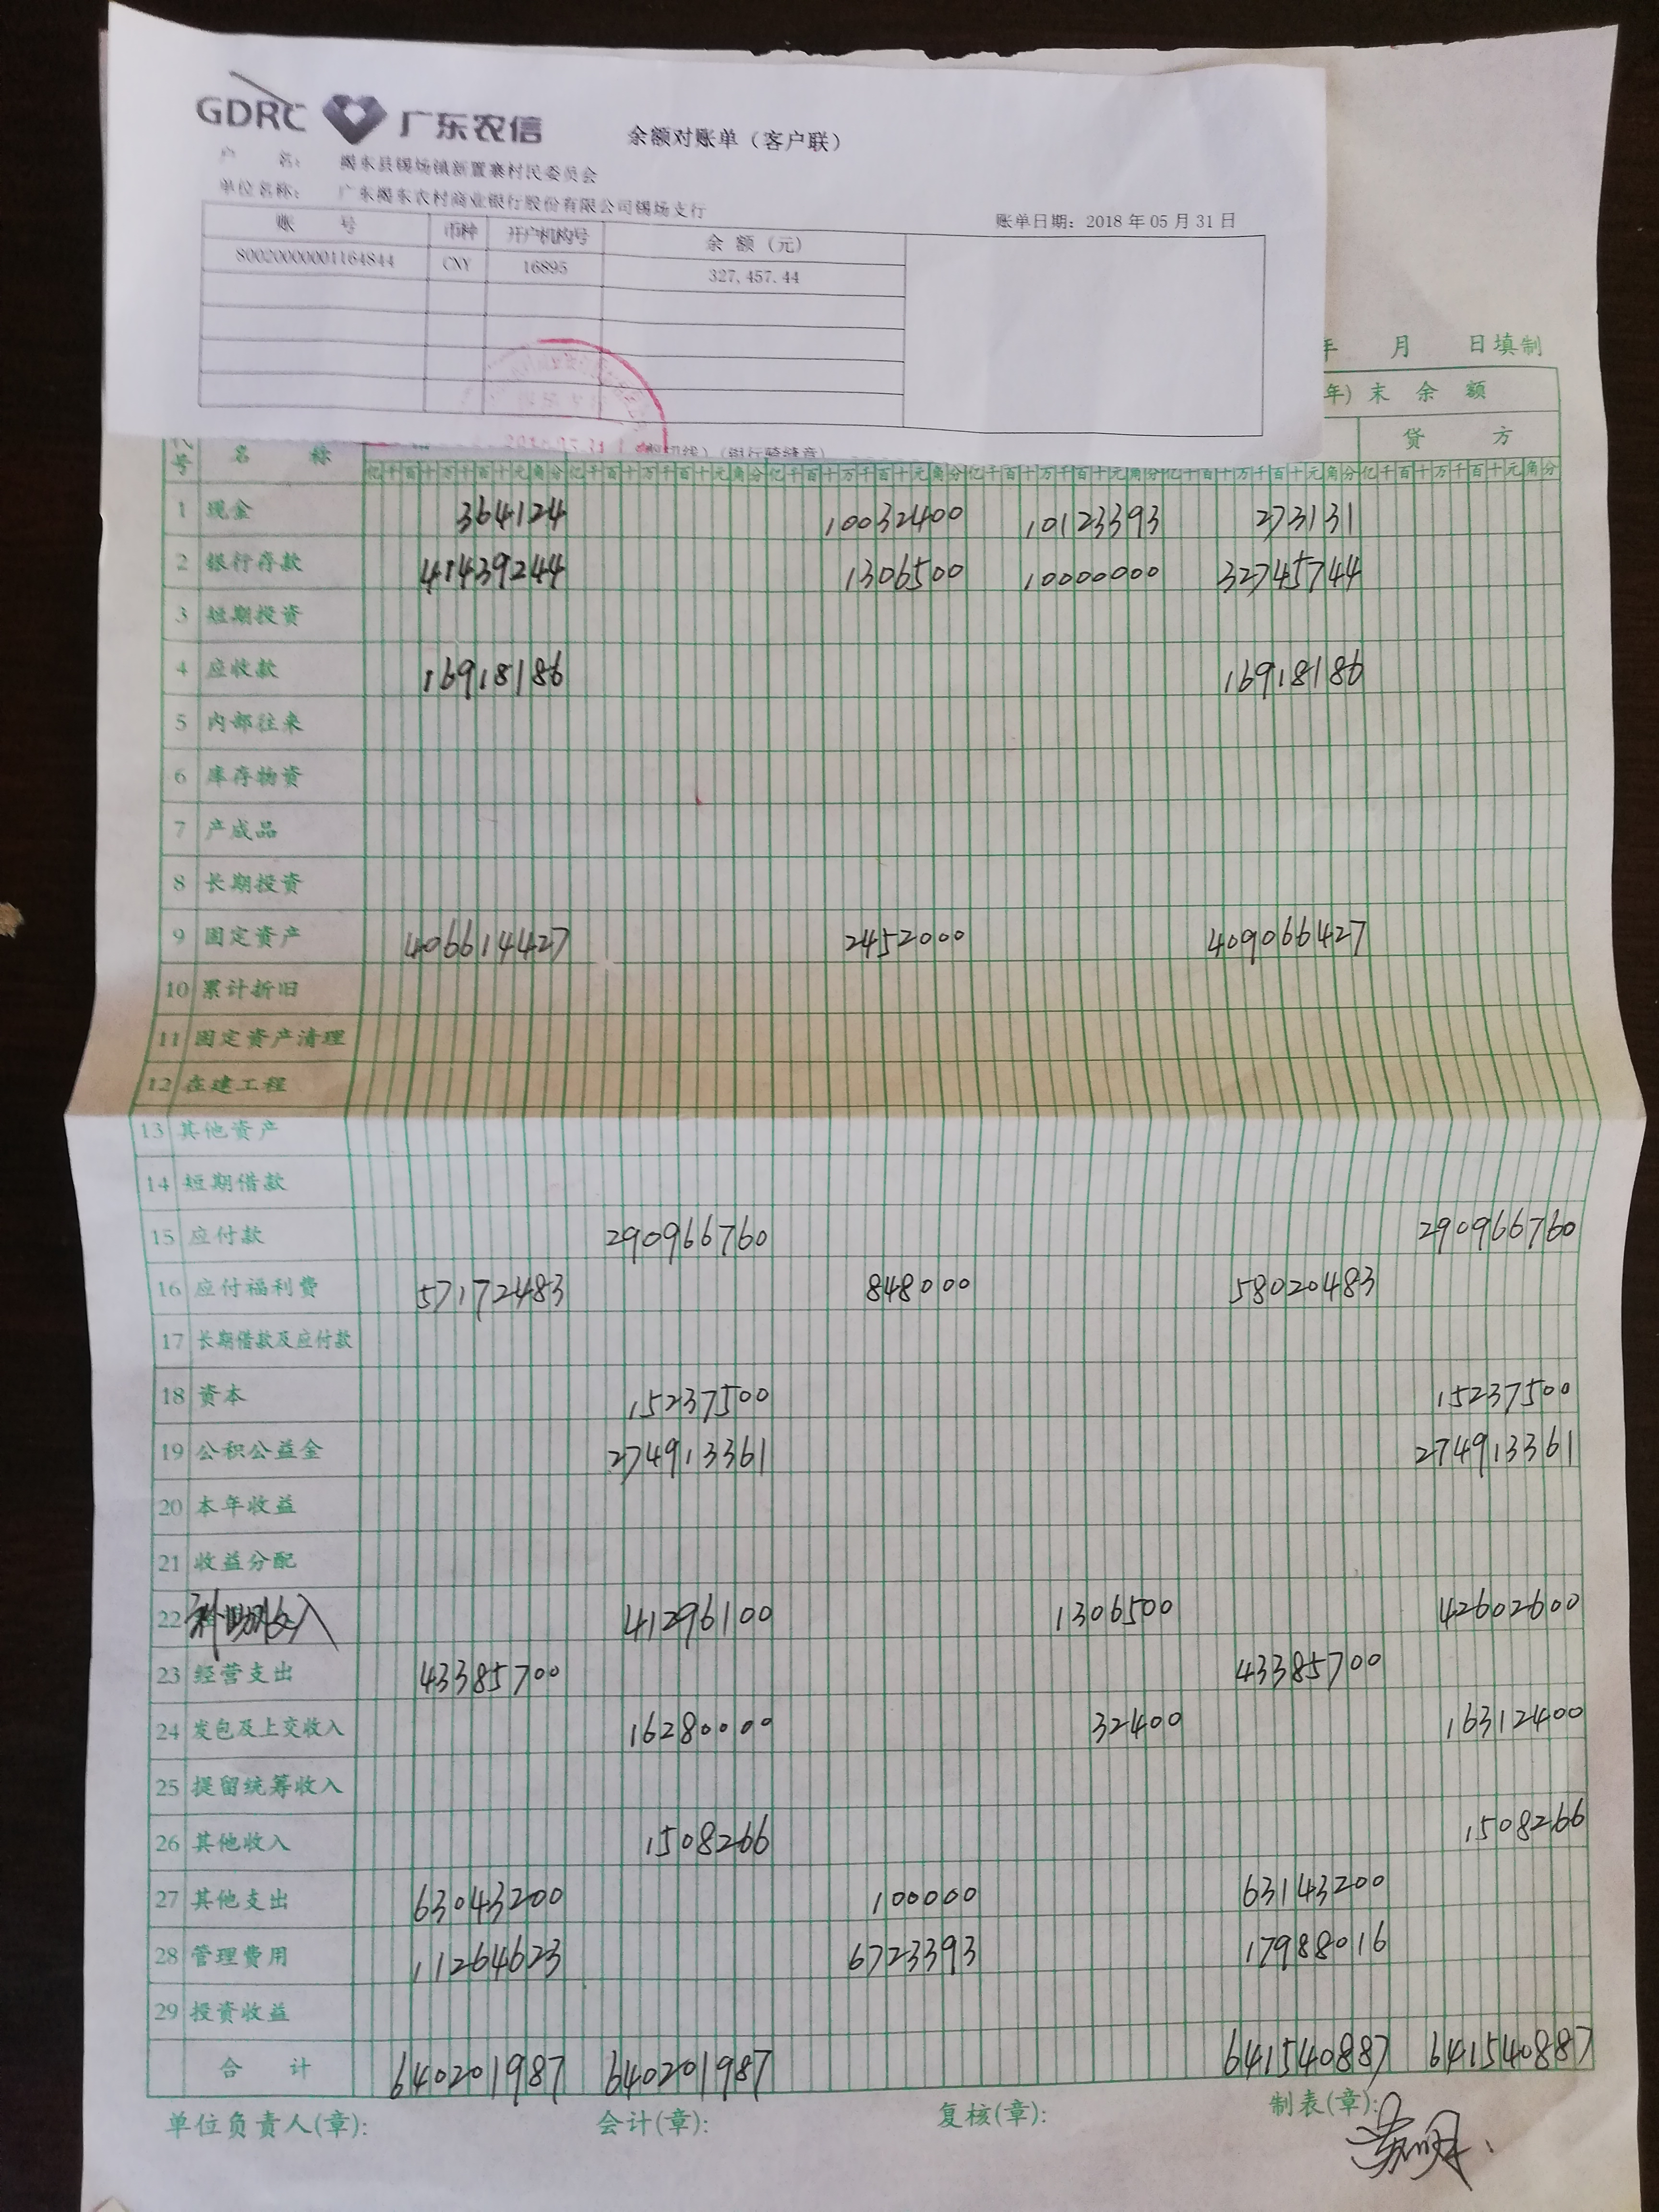 GDRC 广东农信 余额对账单（客户联）
户 名： 揭东县锡场镇新置寨村民委员会
单位名称： 广东揭东农村商业银行股份有限公司锡场支行
账单日期：2018 年 05 月 31 日
账 号 币种 开户机构号 余 额 (元)
80020000001164844 CNY 16895 327,457.44
年 月 日填制
年) 末 余 额
贷 方
(银行骑缝章)
代号 名 称
亿千百十万千百十元角分 亿千百十万千百十元角分 亿千百十万千百十元角分 亿千百十万千百十元角分 亿千百十万千百十元角分 亿千百十万千百十元角分
1 现金 364124 10032400 10123393 273131
2 银行存款 41439244 1306500 10000000 32745744
3 短期投资
4 应收款 16918186 16918186
5 内部往来
6 库存物资
7 产成品
8 长期投资
9 固定资产 406614427 2452000 409066427
10 累计折旧
11 固定资产清理
12 在建工程
13 其他资产
14 短期借款
15 应付款 290966760 290966760
16 应付福利费 57172483 848000 58020483
17 长期借款及应付款
18 资本 15237500 15237500
19 公积公益金 274913361 274913361
20 本年收益
21 收益分配
22 补助收入 41296100 1306500 42602600
23 经营支出 43385700 43385700
24 发包及上交收入 16280000 32400 16312400
25 提留统筹收入
26 其他收入 1508266 1508266
27 其他支出 63043200 100000 63143200
28 管理费用 11264623 6723393 17988016
29 投资收益
合 计 640201987 640201987 641540887 641540887
单位负责人(章): 会计(章): 复核(章): 制表(章):